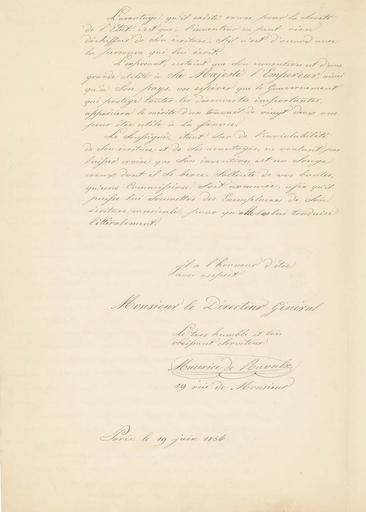 L'avantage qu'il existe encore pour la Sureté
de l'Etat c'est que, l'inventeur ne peut rien
déchiffrer de son écriture s'il n'est d'accord avec
la personne qui lui écrit.
L'exposant, certain que son invention est d'une
grande utilité à Sa Majesté l'Empereur, ainsi
qu'à son pays, ose espérer que le Gouvernement
qui protège toutes les découvertes importantes,
appréciera le mérite d'un travail de vingt deux ans
pour être utile à la france.
Le Soussigné, étant sûr de l'inviolabilité
de Son écriture et de Ses avantages, ne voulant pas
laisser croire que Son invention est un Songe
creux dont il Se berce Sollicite de vos bontés,
qu'une Commission Soit nommée, afin qu'il
puisse lui Soumettre des Exemplaires de Son
écriture pour qu'elle les traduise
littéralement.
J'ai l'honneur d'être
avec respect
Monsieur le Directeur Général
Le très humble et très
obéissant Serviteur
Maurice de
19 rue de Monsieur
Paris le 19 juin 1854